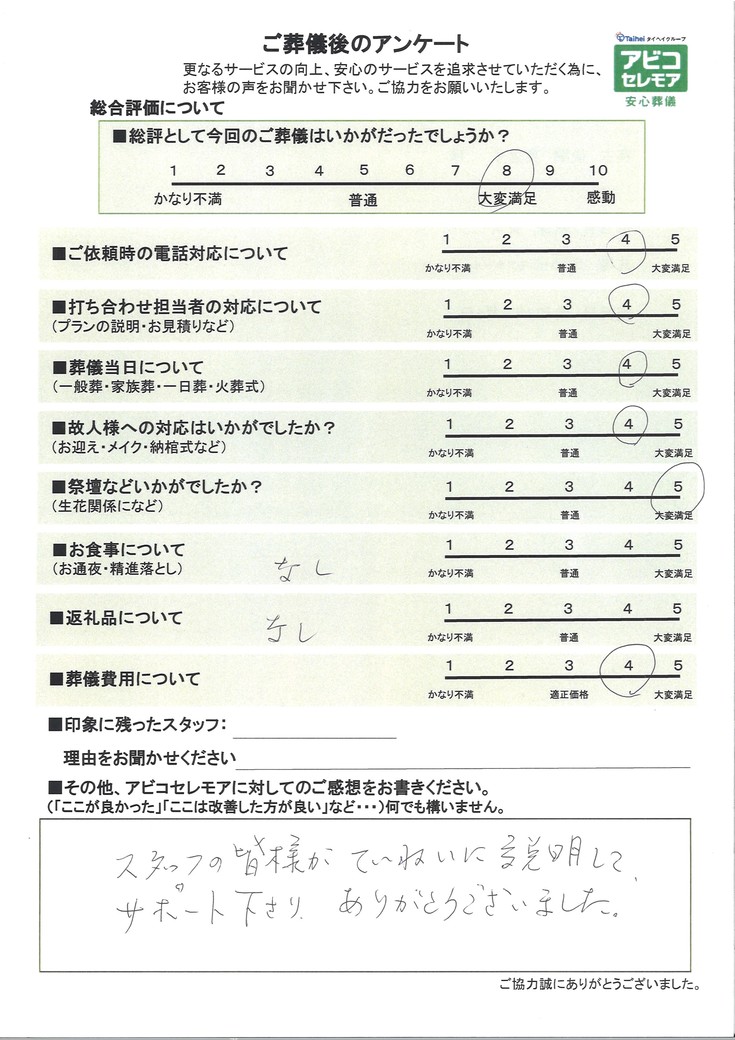 ご葬儀後のアンケート
Taihei タイヘイグループ
アビコ
セレモア
安心葬儀
更なるサービスの向上、安心のサービスを追求させていただく為に、
お客様の声をお聞かせ下さい。ご協力をお願いいたします。
総合評価について
■総評として今回のご葬儀はいかがだったでしょうか？
1 2 3 4 5 6 7 8 9 10
かなり不満 普通 大変満足 感動
■ご依頼時の電話対応について
1 2 3 4 5
かなり不満 普通 大変満足
■打ち合わせ担当者の対応について
（プランの説明・お見積りなど）
1 2 3 4 5
かなり不満 普通 大変満足
■葬儀当日について
（一般葬・家族葬・一日葬・火葬式）
1 2 3 4 5
かなり不満 普通 大変満足
■故人様への対応はいかがでしたか？
（お迎え・メイク・納棺式など）
1 2 3 4 5
かなり不満 普通 大変満足
■祭壇などいかがでしたか？
（生花関係になど）
1 2 3 4 5
かなり不満 普通 大変満足
■お食事について
（お通夜・精進落とし） なし
1 2 3 4 5
かなり不満 普通 大変満足
■返礼品について なし
1 2 3 4 5
かなり不満 普通 大変満足
■葬儀費用について
1 2 3 4 5
かなり不満 適正価格 大変満足
■印象に残ったスタッフ：
理由をお聞かせください
■その他、アビコセレモアに対してのご感想をお書きください。
（「ここが良かった」「ここは改善した方が良い」など・・・）何でも構いません。
スタッフの皆様が ていねいに説明して、
サポート下さり、ありがとうございました。
ご協力誠にありがとうございました。